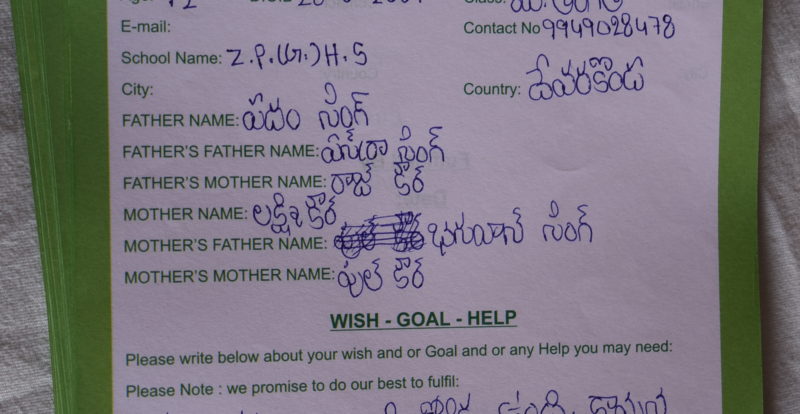 E-mail: Contact No 9949028478
School Name: Z.P.(G.)H.S
City: Country: దేవరకొండ
FATHER NAME: పదం సింగ్
FATHER'S FATHER NAME: సింగ్
FATHER'S MOTHER NAME: రాజ్ కౌర్
MOTHER NAME: లక్ష్మికౌర్
MOTHER'S FATHER NAME: భగవాన్ సింగ్
MOTHER'S MOTHER NAME: ఫుల్ కౌర్
WISH - GOAL - HELP
Please write below about your wish and or Goal and or any Help you may need:
Please Note : we promise to do our best to fulfil: